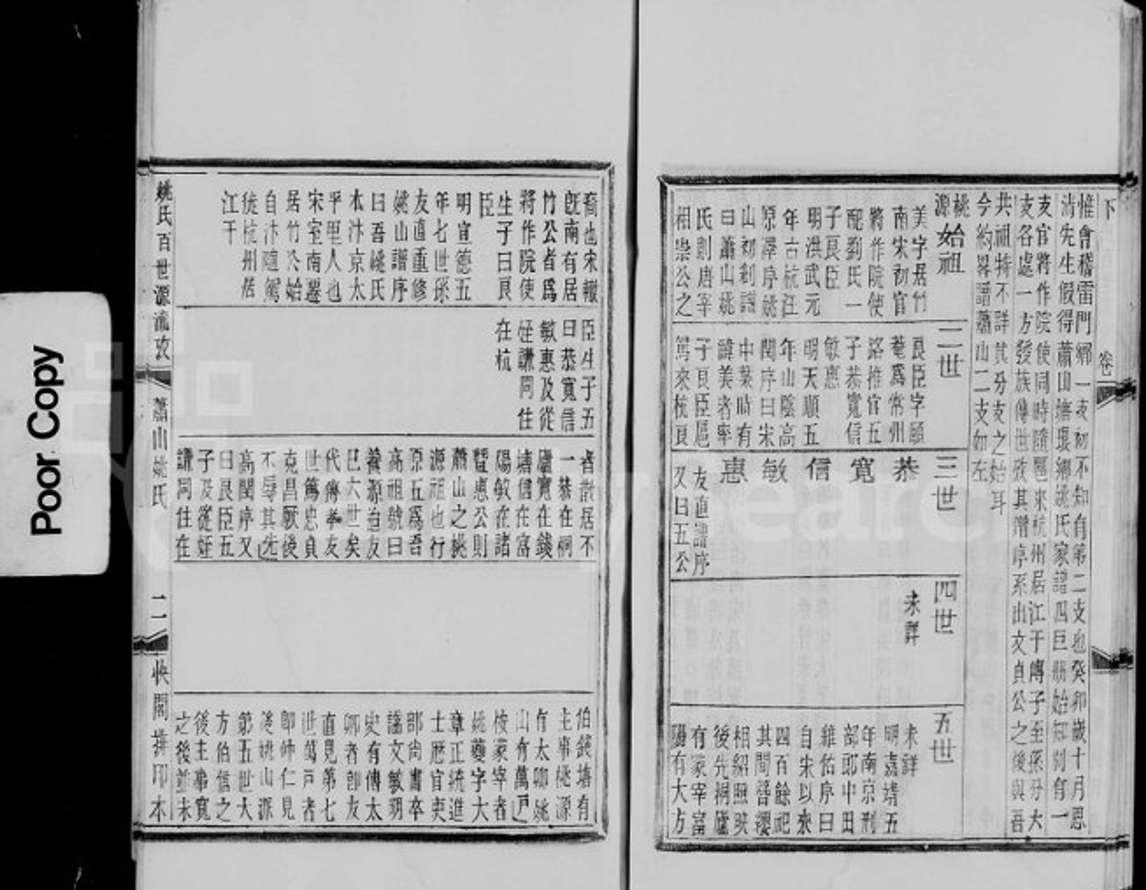 Poor Copy
卷
下
惟會稽雷門鄉一支初不知有第二支也癸卯歲十月恩
清先生假得蕭山塘環鄉姚氏家譜四巨冊始知別有一
支官將作院使同時隨扈來杭州居江干傳子至孫分大
支各處一方發族傳世攷其譜序系出文貞公之後與吾
共祖特不詳其分支之始耳
今約畧譜蕭山二支如左
桃源始祖
美字居竹
南宋初官
將作院使
配劉氏一
子良臣
明洪武元
年古杭汪
原澤序姚
山初剏譜
曰蕭山姚
氏則唐宰
相崇公之
二世
良臣字願
菴爲常州
路推官五
子恭寬信
敏惠
明天順五
年山陰高
閏序曰宋
中葉時有
諱美者率
子良臣扈
駕來杭良
三世
恭
寬
信
敏
惠
友直譜序
又曰五公
四世
未詳
五世
未詳
明嘉靖五
年南京刑
部郎中田
雖佑序曰
自宋以來
四百餘祀
其間簪纓
相紹照映
後先桐廬
有冢宰富
陽有大方
裔也宋轍
旣南有居
竹公者爲
將作院使
生子曰良
臣
明宣德五
年七世孫
友直重修
姚山譜序
曰吾姚氏
本汴京太
平里人也
宋室南遷
居竹公始
自汴隨駕
徙杭州居
江干
臣生子五
曰恭寬信
敏惠及從
姪謙同住
在杭
者散居不
一恭在桐
廬寬在錢
塘信在富
陽敏在諸
暨惠公則
蕭山之桃
源祖也行
原五爲吾
高祖號曰
養源迨友
巳六世矣
代傳孝友
世篤忠貞
克昌厥後
不辱其先
高閏序又
曰良臣五
子及從姪
謙同住在
伯錢塘有
主事桃源
有太卿姚
山有萬戶
桉冢宰者
姚夔字大
章正統進
士歷官吏
部尚書本
諡文敏明
史有傳太
卿者卽友
直見第七
世萬戶者
卽仲仁見
後姚山派
第五世大
方伯信之
後主事寬
之後並未
姚氏百世源流攷
蕭山姚氏
二
快閣排印本